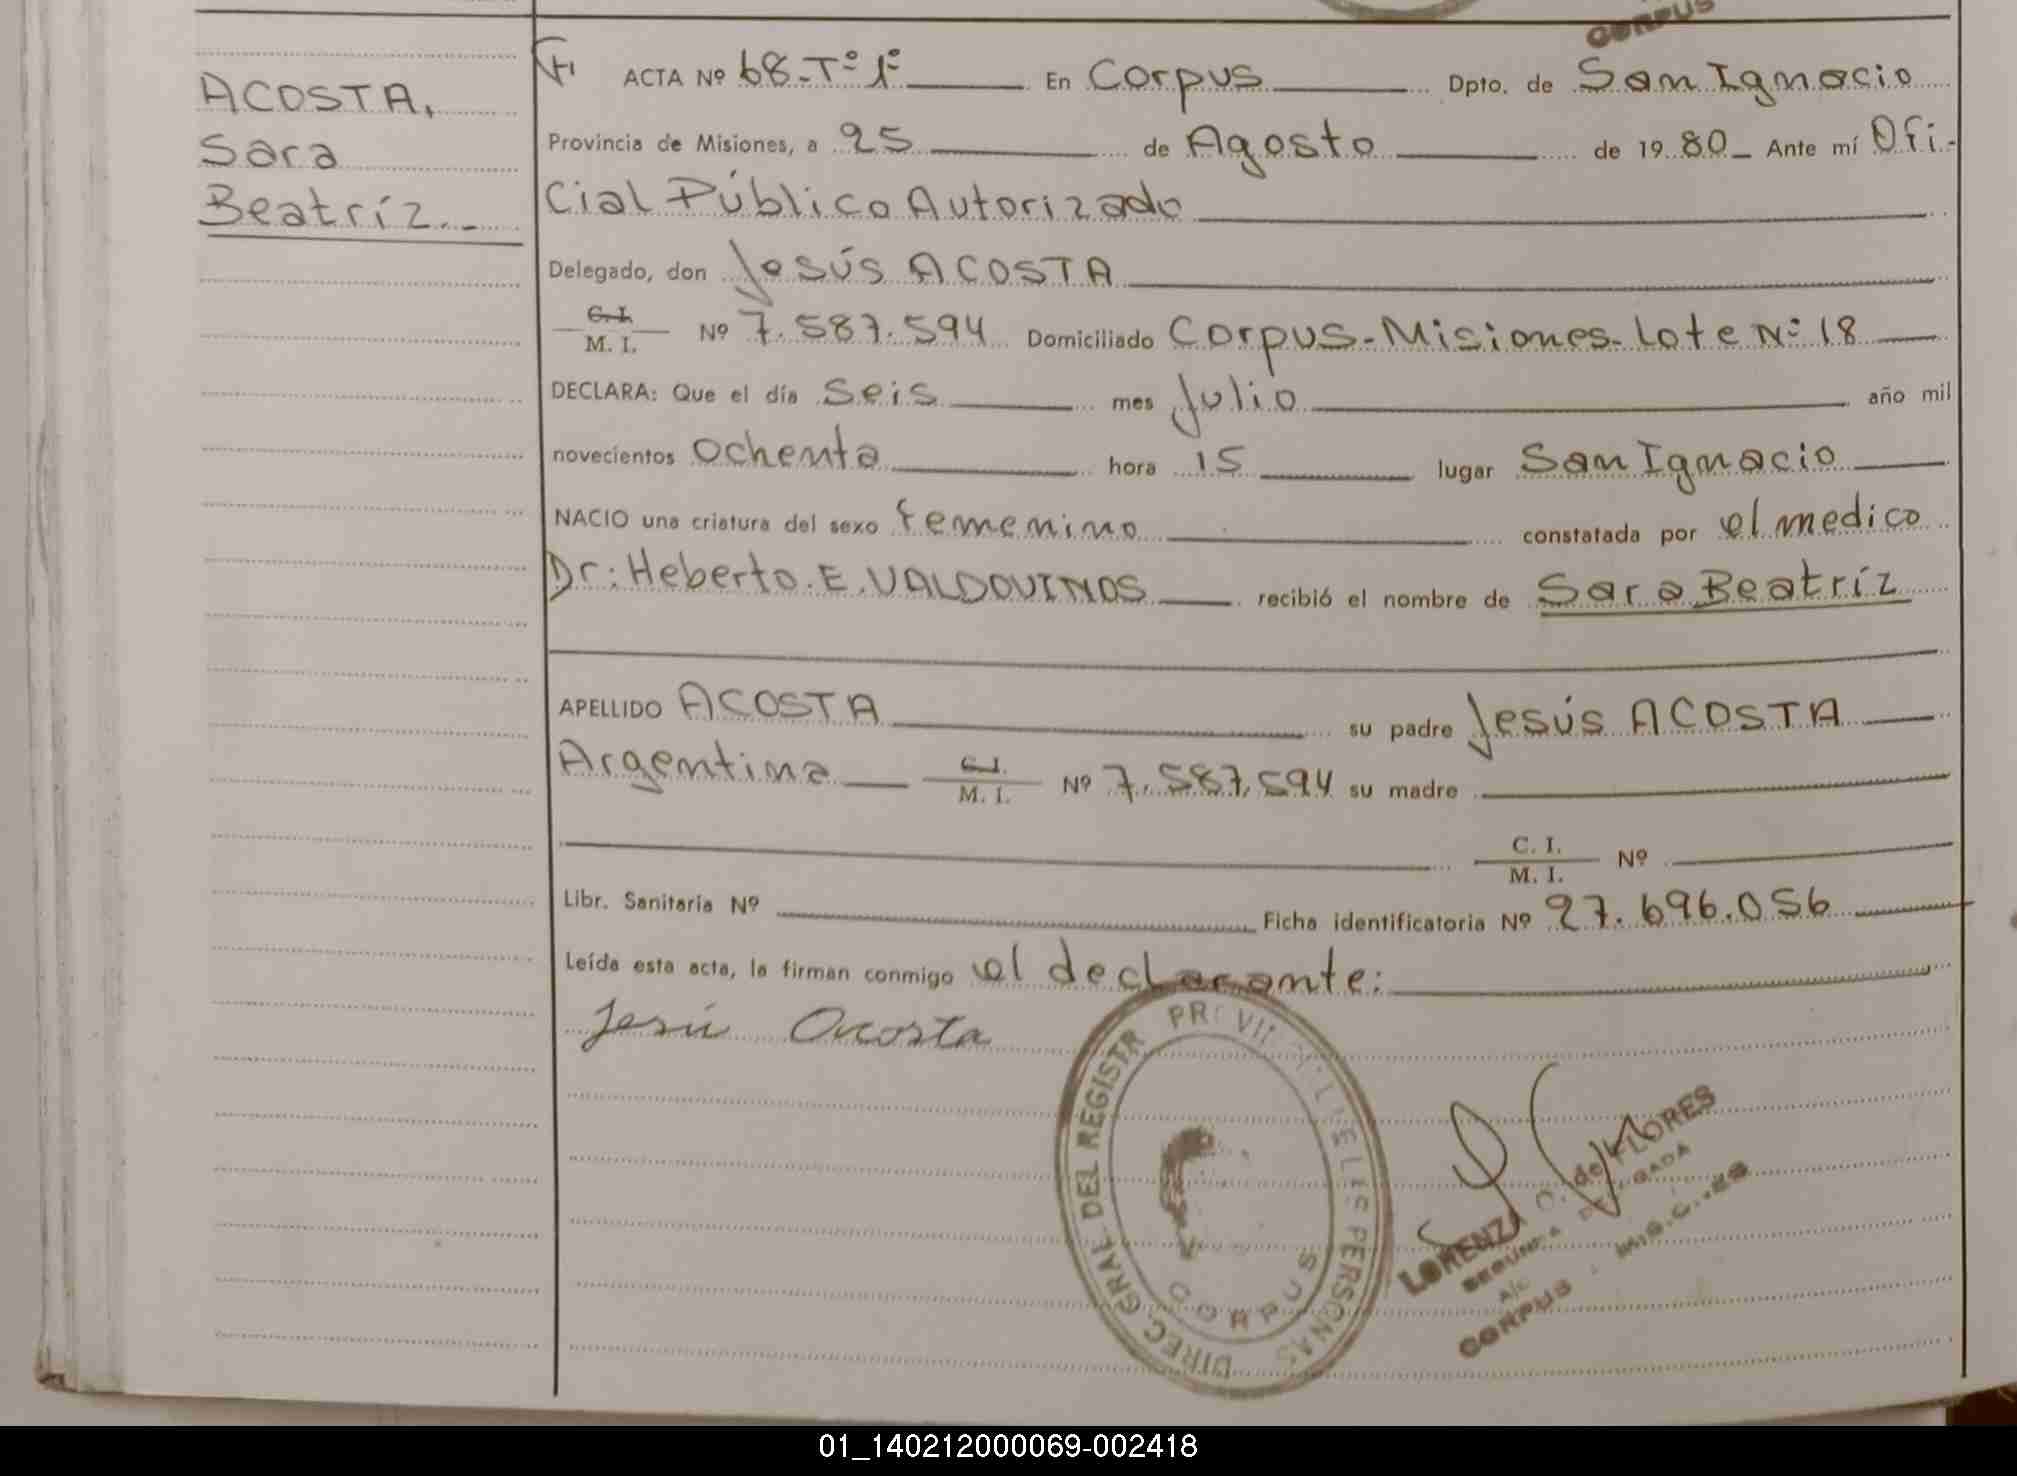 CORPUS
ACOSTA,
Sara
Beatríz.-
ACTA Nº 68-Tº 1º En Corpus Dpto. de San Ignacio
Provincia de Misiones, a 25 de Agosto de 1980 Ante mí Ofi-
cial Público Autorizado
Delegado, don Jesús ACOSTA
C. I.
M. I. Nº 7.587.594 Domiciliado Corpus-Misiones-Lote Nº 18
DECLARA: Que el día seis mes Julio año mil
novecientos ochenta hora 15 lugar San Ignacio
NACIO una criatura del sexo femenino constatada por el medico
Dr: Heberto.E.VALDOVINOS recibió el nombre de Sara Beatríz
APELLIDO ACOSTA su padre Jesús ACOSTA
Argentina C. I.
M. I. Nº 7.587.594 su madre
C. I.
M. I. Nº
Libr. Sanitaria Nº Ficha identificatoria Nº 27.696.056
Leída esta acta, la firman conmigo el declarante:
Jesús Acosta
DIREC. GRAL. DEL REGISTR PERSONAS
CORPUS
LORENZA O. de FLORES
SEGUNDA DELEGADA
A/C
CORPUS
01_140212000069-002418